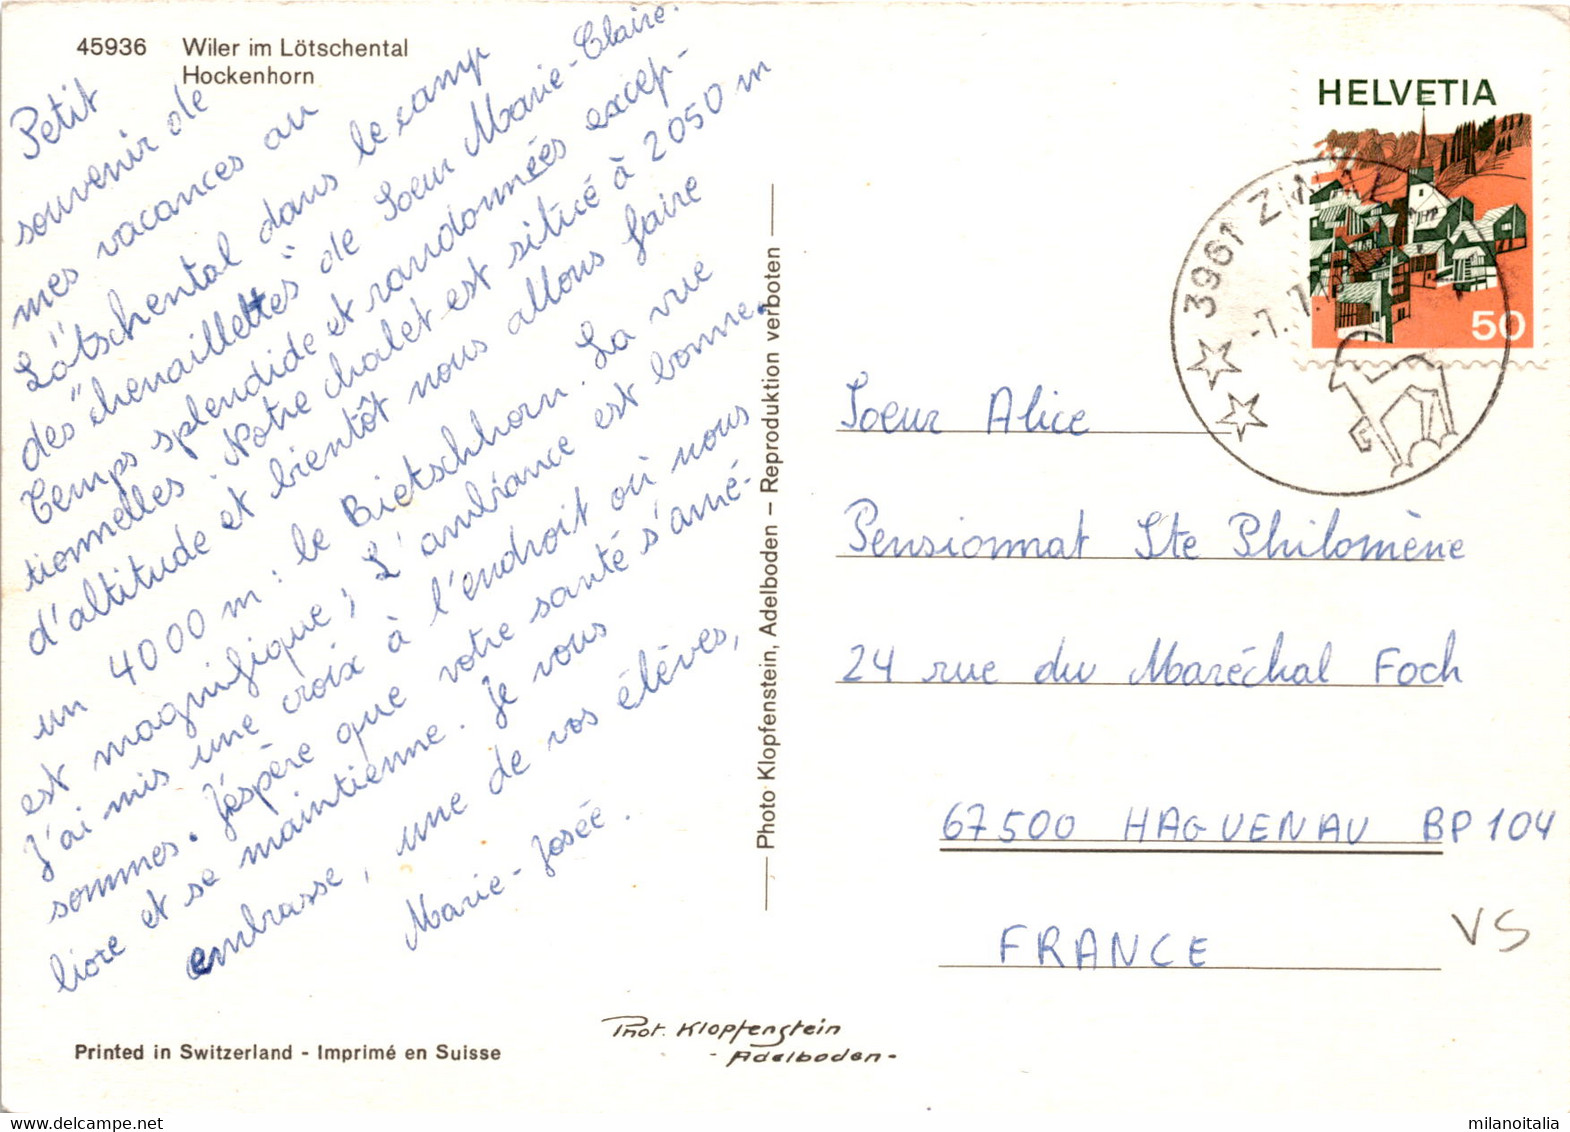 45936 Wiler im Lötschental
Hockenhorn
Petit
souvenir de
mes vacances au
Lötschental dans le camp
des "chenaillettes" de Soeur Marie-Claire.
Temps splendide et randonnées excep-
tionnelles. Notre chalet est situé à 2050 m
d'altitude et bientôt nous allons faire
un 4000 m : le Bietschhorn. La vue
est magnifique ; L'ambiance est bonne.
J'ai mis une croix à l'endroit où nous
sommes. J'espère que votre santé s'amé-
liore et se maintienne. Je vous
embrasse, une de vos élèves,
Marie-Josée.
Printed in Switzerland - Imprimé en Suisse
Photo Klopfenstein, Adelboden – Reproduktion verboten
Phot. Klopfenstein
- Adelboden -
HELVETIA
50
3961 ZINAL
-7.7.
Soeur Alice
Pensionnat Ste Philomène
24 rue du Maréchal Foch
67500 HAGUENAU BP 104
FRANCE
VS
milanoitalia